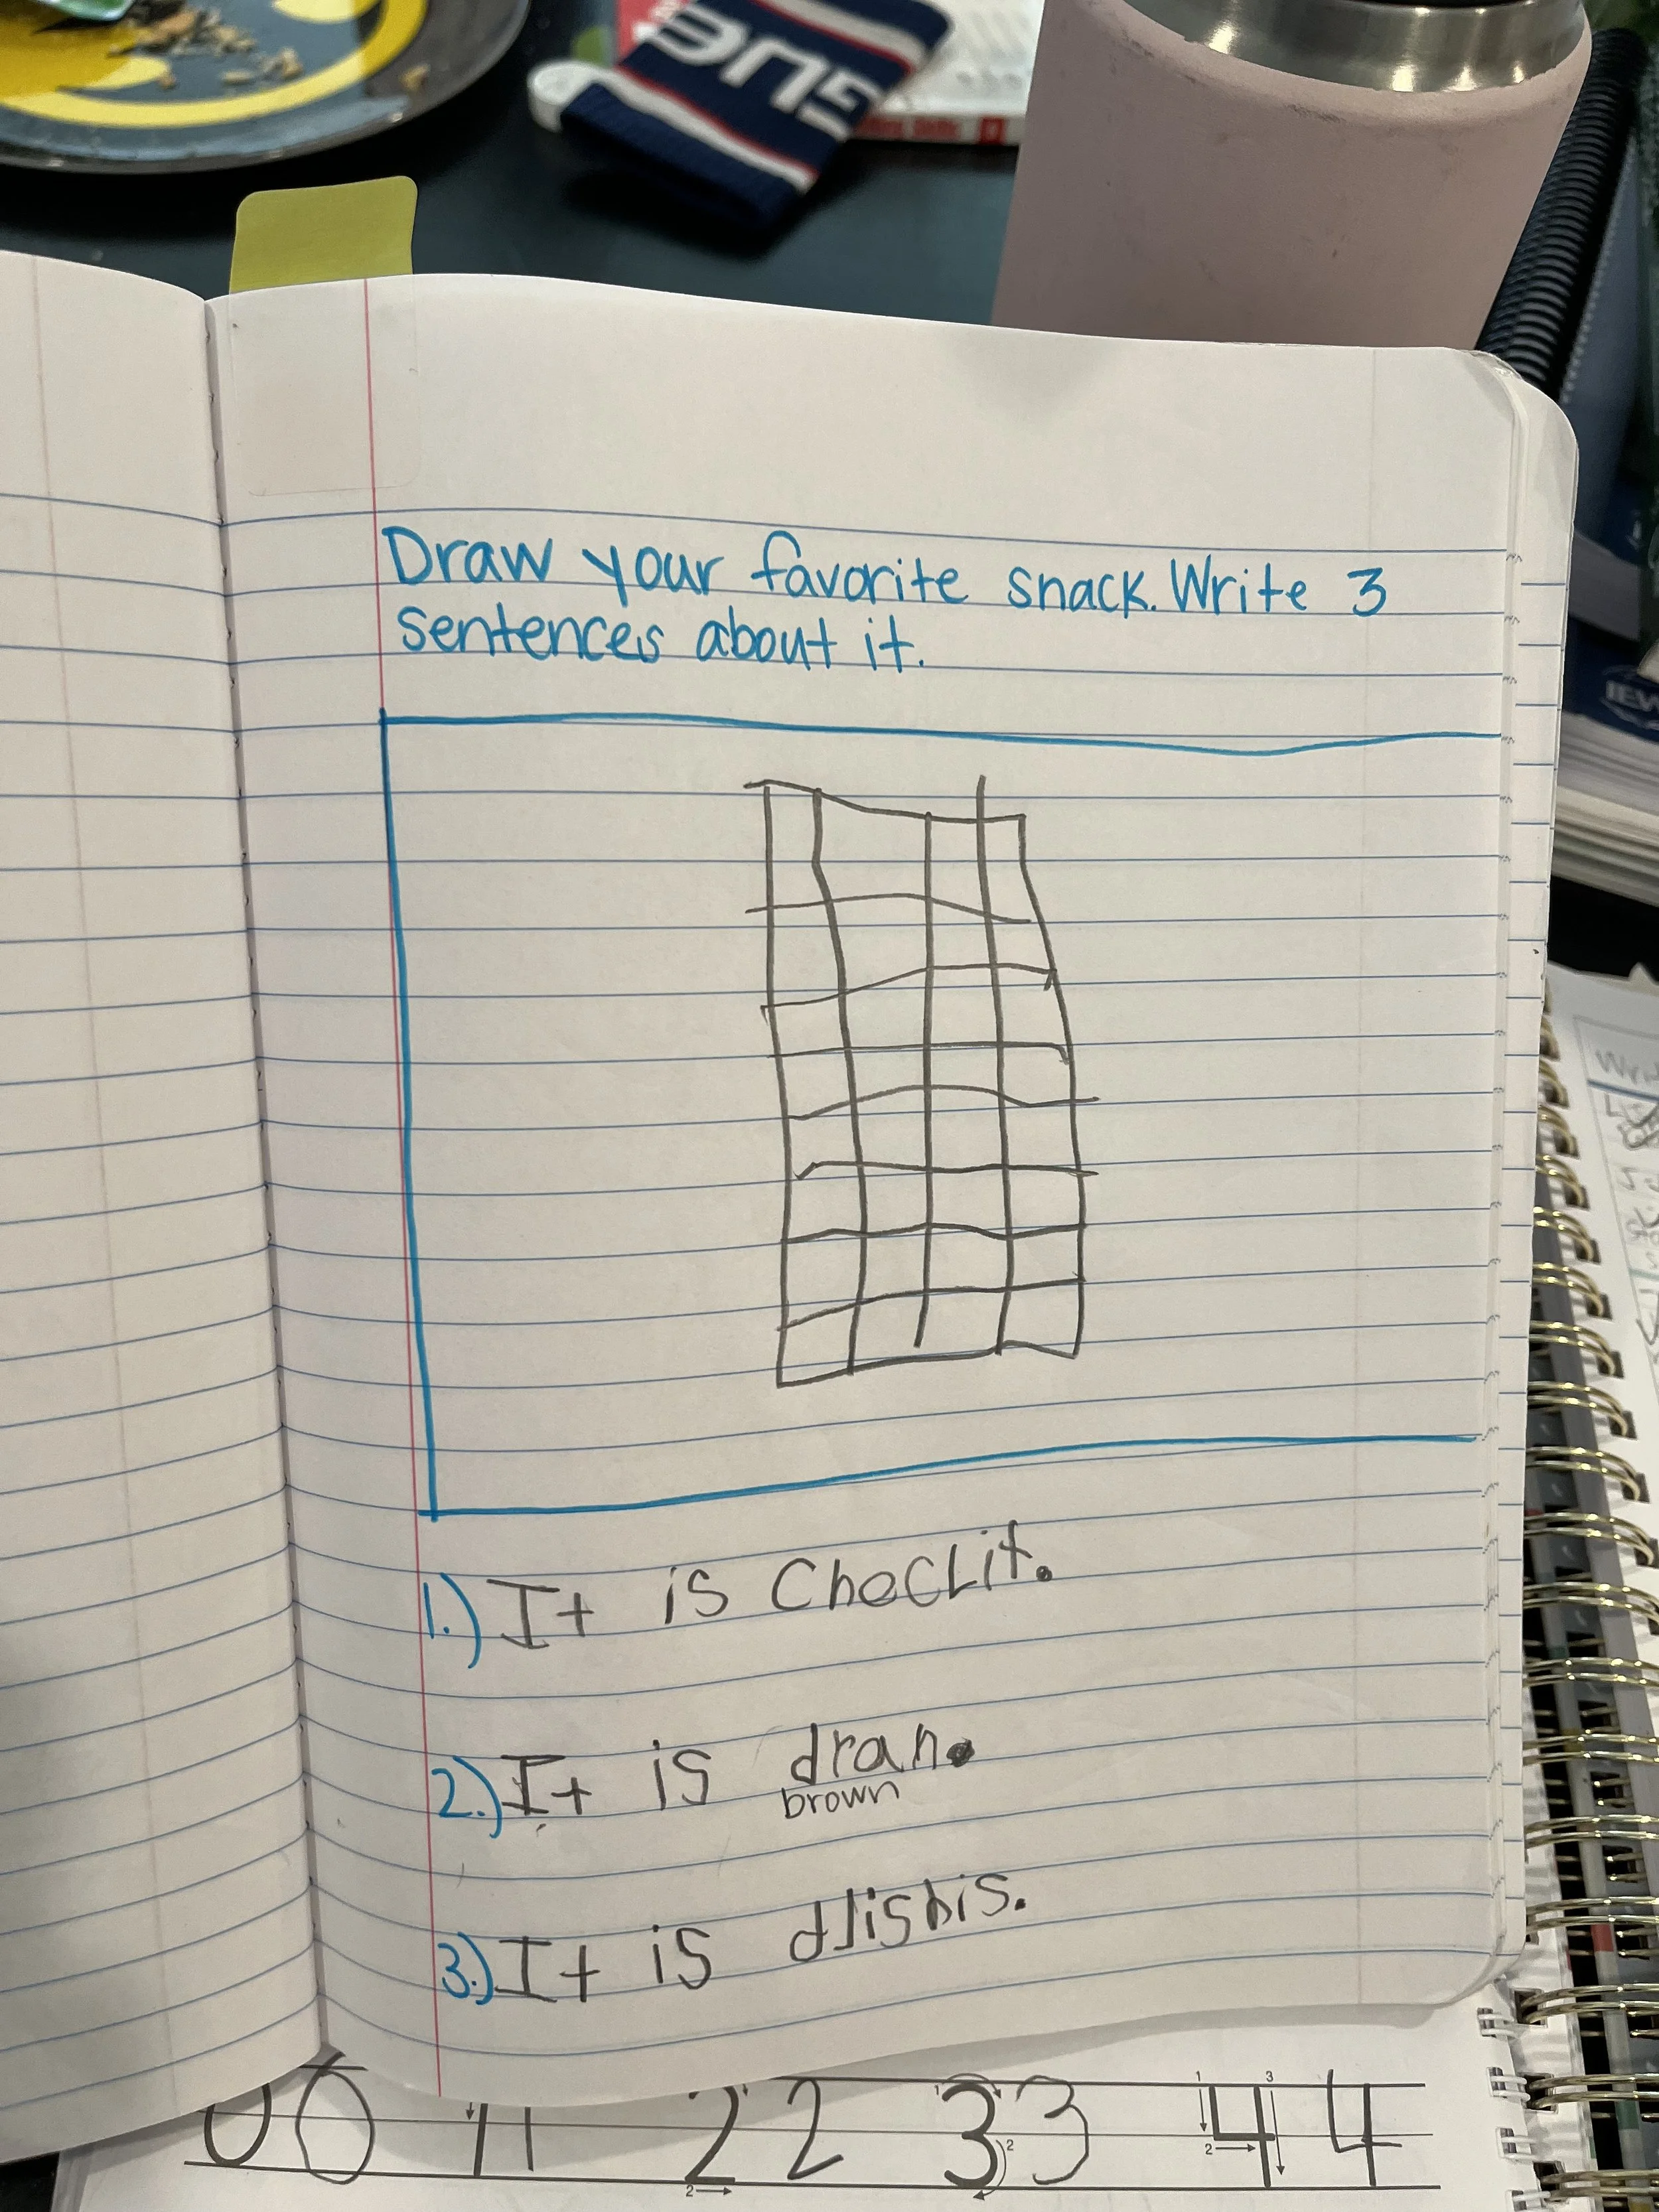 GUE
IEW
Draw your favorite snack. Write 3
sentences about it.
1.) It is Choclit.
2.) It is dran.
brown
3.) It is dlishis.
0 0 1 1 2 2 3 3 4 4